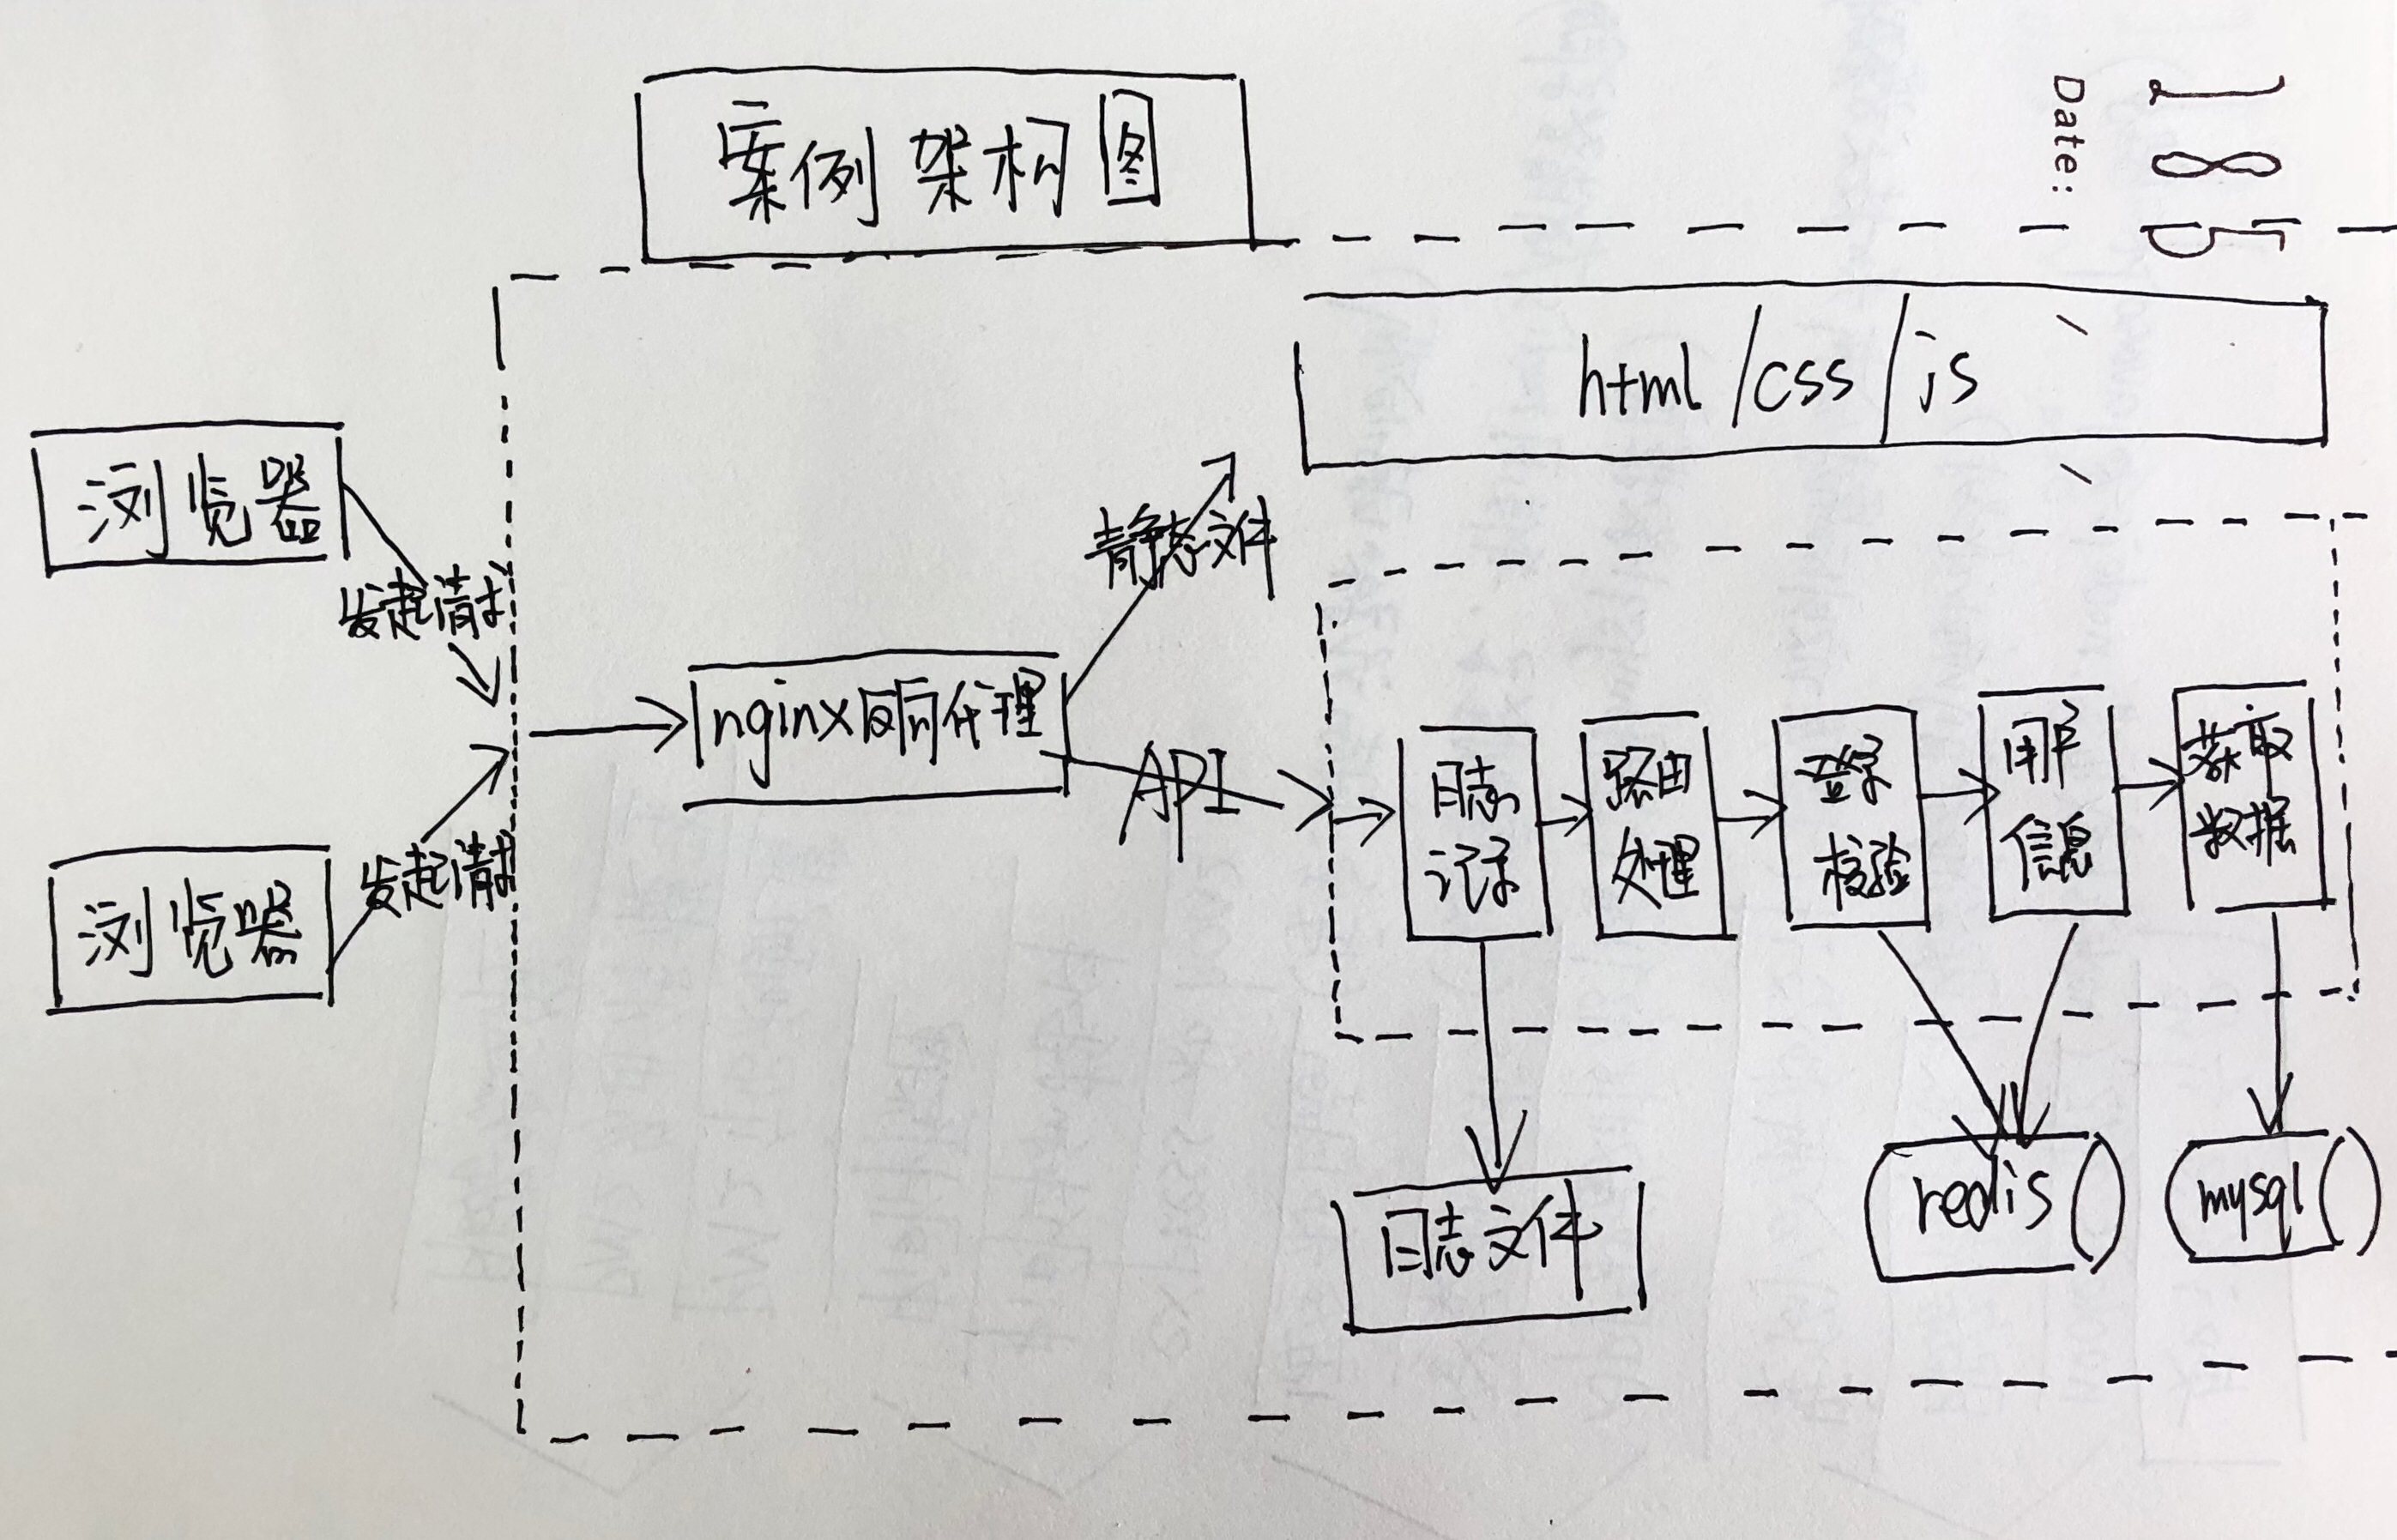 案例架构图
Date:
185
html/css/js
浏览器
发起请求
静态文件
nginx反向代理
API
日志
记录
路由
处理
登录
校验
用户
信息
获取
数据
浏览器
发起请求
日志文件
redis
mysql